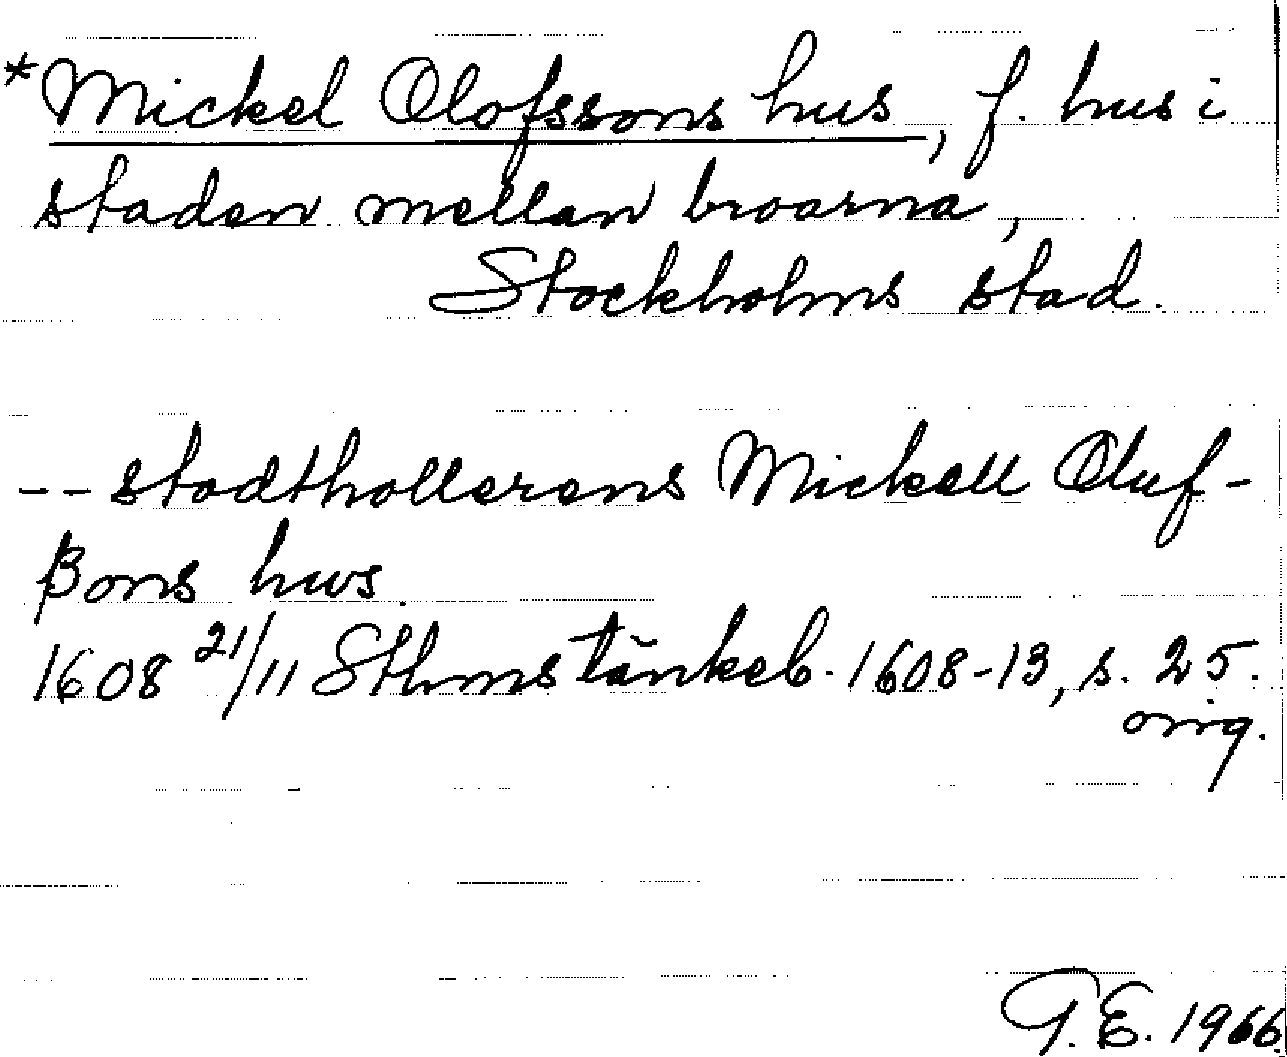 *Mickel Olofssons hus, f. hus i
staden mellan broarna,
Stockholms stad.
-- stadthollerens Mickell Oluf-
ßons hws.
1608 21/11 Sthms tänkeb. 1608-13, s. 25.
orig.
G.E. 1966